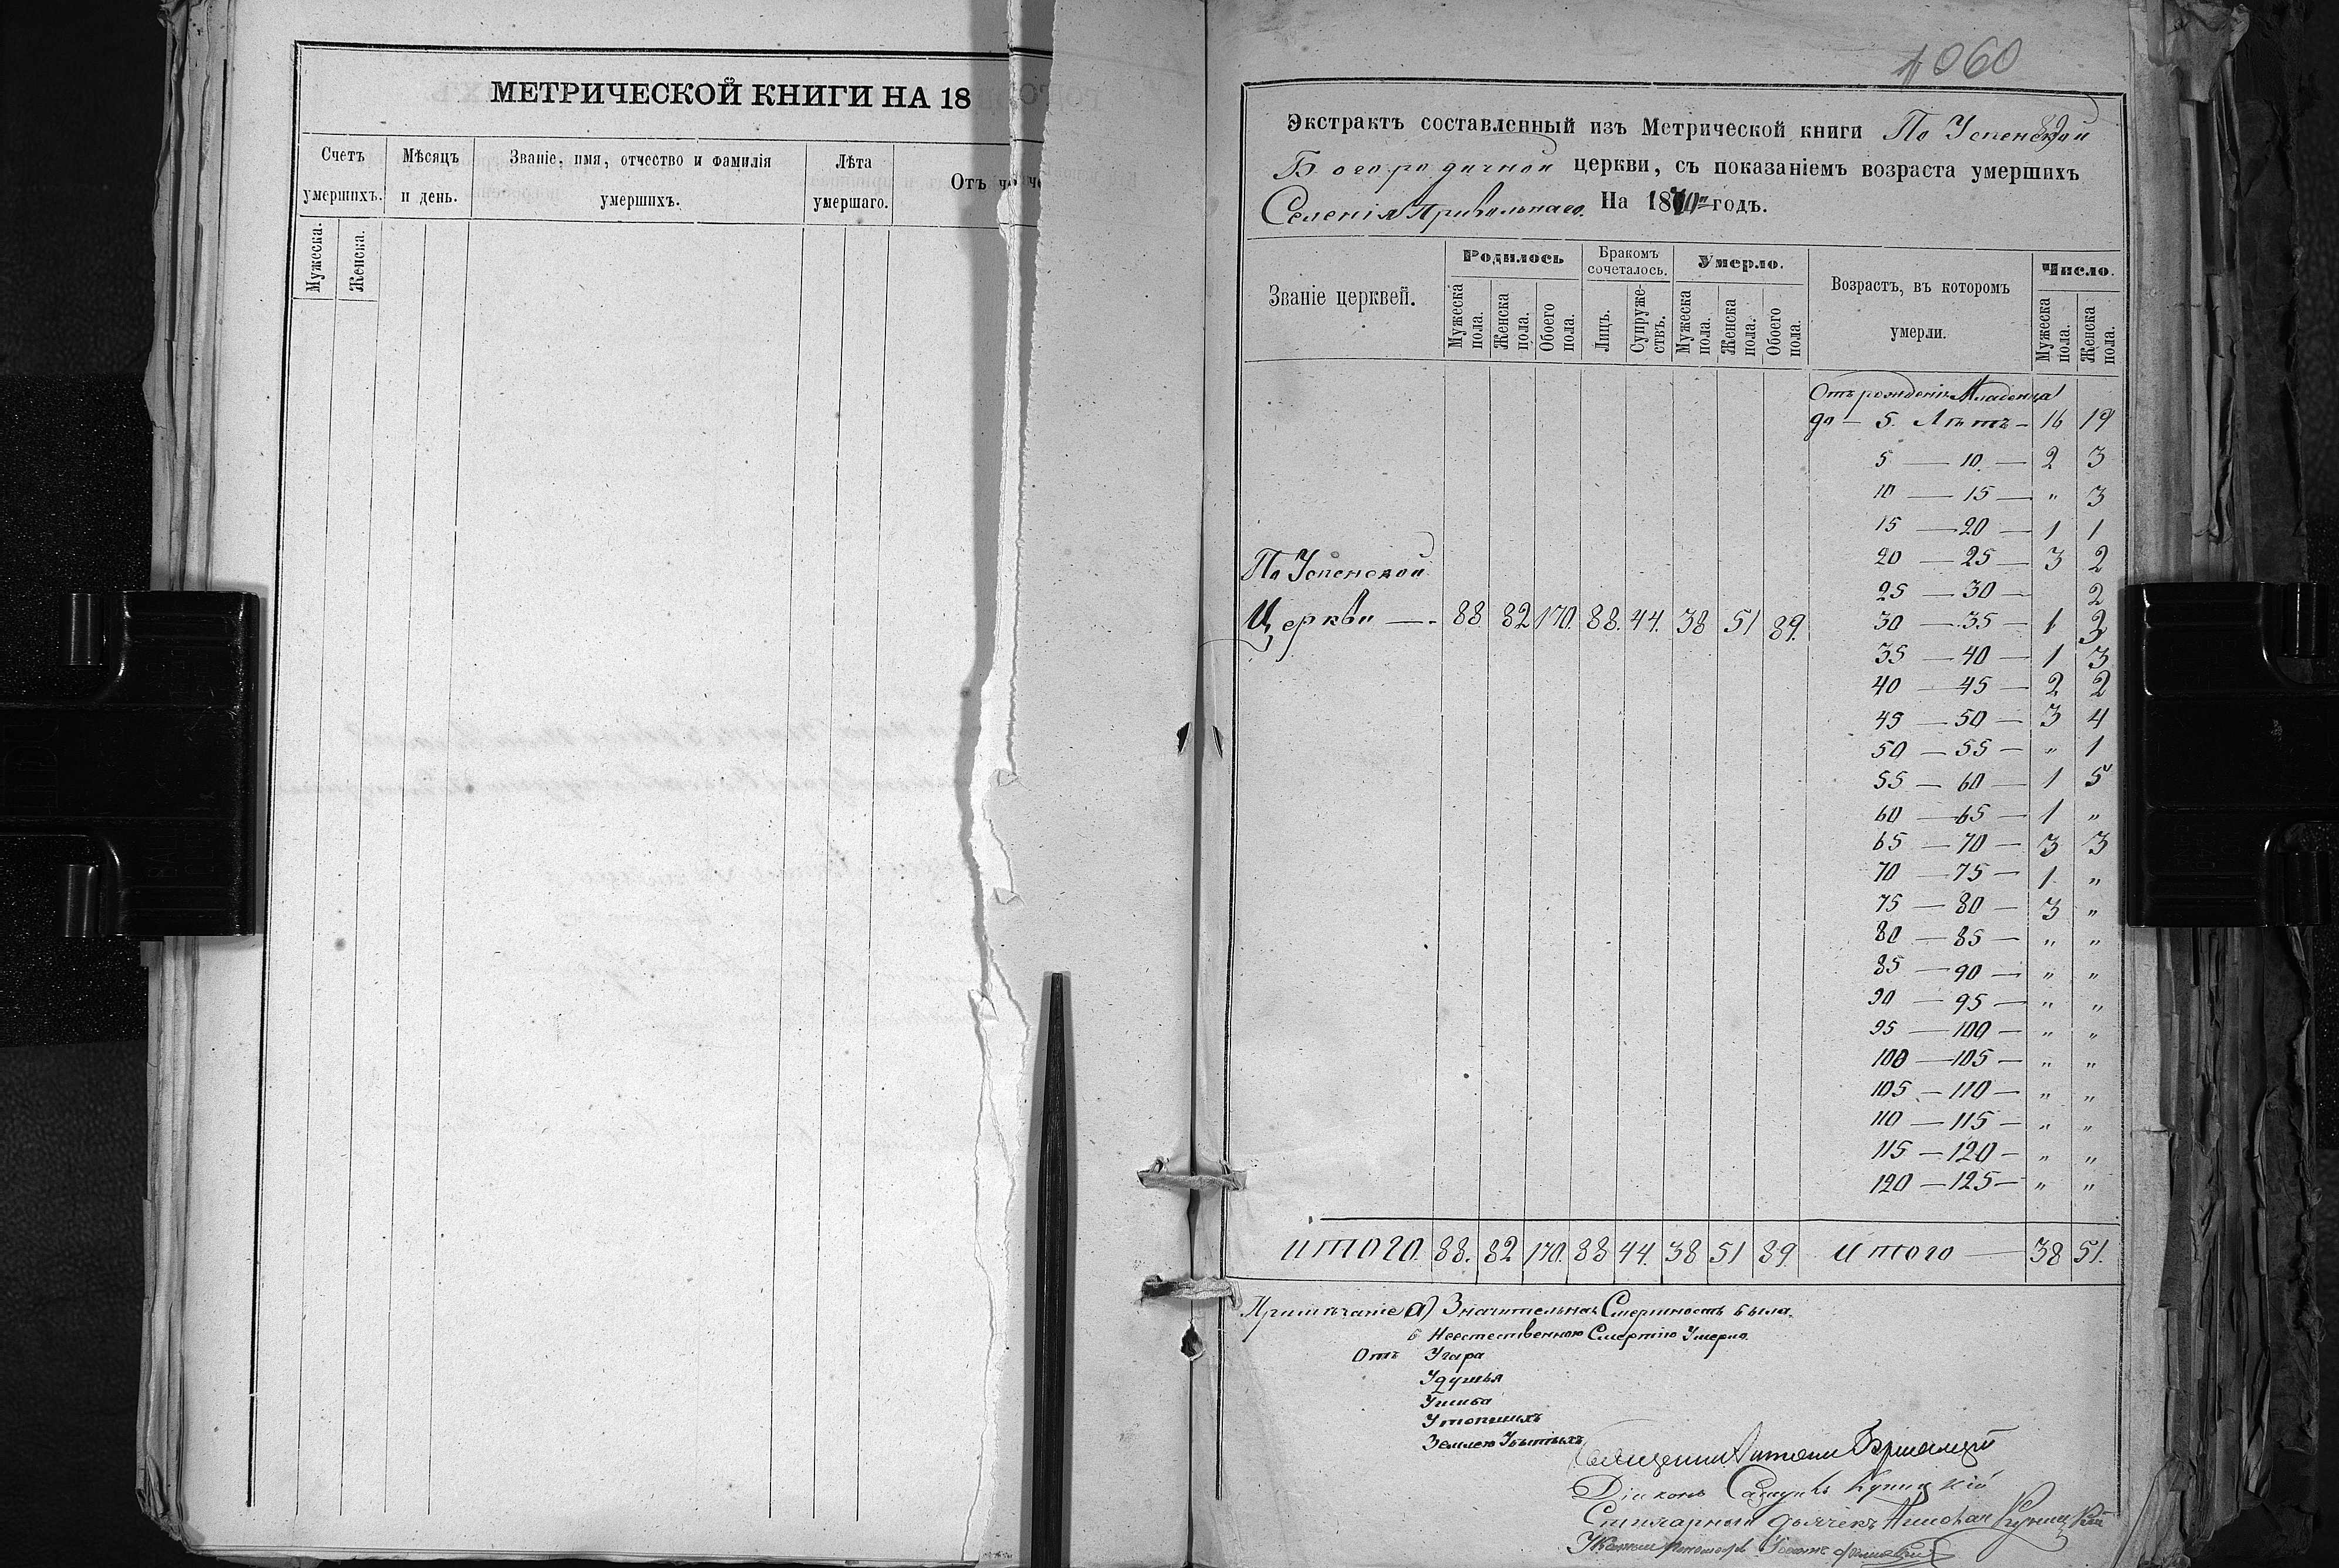 МЕТРИЧЕСКОЙ КНИГИ НА 18
Счетъ умершихъ.
Мѣсяцъ и день.
Званіе, имя, отчество и фамилія умершихъ.
Лѣта умершаго.
Отъ че
Мужеска.
Женска.
1060
Экстрактъ составленный изъ Метрической книги По Успенской
Богородичной церкви, съ показаніемъ возраста умершихъ
Селенія Привольнаго. На 1870й годъ.
Званіе церквей.
Родилось
Бракомъ сочеталось.
Умерло.
Возрастъ, въ котором умерли.
Число.
Мужеска пола.
Женска пола.
Обоего пола.
Лицъ.
Супружествъ.
Мужеска пола.
Женска пола.
Обоего пола.
Мужеска пола.
Женска пола.
Отъ рожденія Младенца
до — 5. Лѣтъ — 16 19
5 — 10 — 2 3
10 — 15 — „ 3
15 — 20 — 1 1
20 — 25 — 3 2
25 — 30 — 2
30 — 35 — 1 3
35 — 40 — 1 3
40 — 45 — 2 2
45 — 50 — 3 4
50 — 55 — „ 1
55 — 60 — 1 5
60 — 65 — 1 „
65 — 70 — 3 3
70 — 75 — 1 „
75 — 80 — 3 „
80 — 85 — „ „
85 — 90 — „ „
90 — 95 — „ „
95 — 100 — „ „
100 — 105 — „ „
105 — 110 — „ „
110 — 115 — „ „
115 — 120 — „ „
120 — 125 — „ „
По Успенской
Церкви — 88 82 170. 88. 44. 38 51 89.
итого. 88. 82 170. 88 44. 38 51 89 Итого — 38 51.
Примѣчаніе а) Значительная Смертность была.
б Неестественною Смертію Умерло.
Отъ Угара
Удушья
Ушиба
Утопшихъ
Землею Убитыхъ
Священникъ
Діаконъ Купицкій
дьячекъ Купицкій